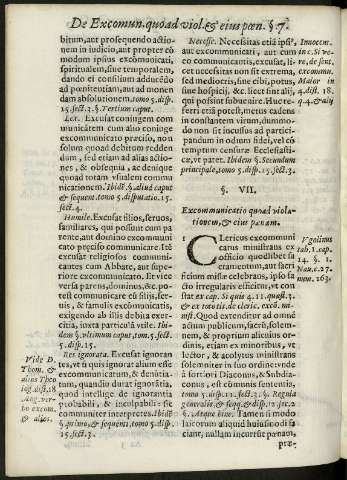 De Excomun. quoad viol. & eius pœn. §. 7.
bitum, aut prosequendo actio-
nem in iudicio, aut propter cõ
modum ipsius excõmunicati,
spiritualem, siue temporalem,
dando ei consilium adducẽdo
ad pœnitentiam, aut ad monen
dam absolutionem. tomo 5. disp.
15. sect. 3. §. Tertium caput.
Lex. Excusat coniugem com
municatẽm cum alio coniuge
excommunicato preciso, non
solum quoad debitum redden
dum, sed etiam ad alias actio-
nes, & obsequia, ac denique
quoad totam vsualem commu
nicationem. Ibidẽ. §. aliud caput
& sequent. tomo 5. disputatio. 15.
sect. 4.
Humile. Excusat filios, seruos,
familiares, qui possunt cum pa
rente, aut domino excommuni
cato preciso communicare. Itẽ
excusat religiosos communi-
cantes cum Abbate, aut supe-
riore excommunicato. Et vice
versa parens, dominus, &c. po-
test communicare cũ filijs, ser-
uis, & familijs excommunicatis,
exigendo ab illis debita exer-
citia, iuxta particulã vtile. Ibi-
dem §. vltimum caput, tom. 5. sect.
5. disp. 15.
Vide D.
Thom. &
alios Theo
in 4. dis. 18
Ang. ver-
bo excom.
& alios.
Res ignorata. Excusat ignoran
tes, vt si quis ignorat alium esse
excommunicatum, & denũtia-
tum, quandiu durat ignorãtia,
quod intellige de ignorantia
probabili, & inculpabili: sic
communiter interpretes. Ibidẽ
§. primo, & sequent. tomo 5. disp.
15. sect. 3.
Necesse. Necessitas etiã ipsiº,
aut excommunicati, aut cum
eo communicantis, excusat, li-
cet necessitas non sit extrema,
sed mediocris, siue cibi, potus,
siue hospicij, &c. licet sint alij
qui possint subuenire. Huc re-
ferri etiã potest, metus cadens
in constantem virum, dummo-
do non sit incussus ad partici-
pandum in odium fidei, vel cõ
temptum censuræ Ecclesiasti-
cæ, vt patet. Ibidem §. Secundum
principale, tomo 5. disp. 15. sect. 3.
Innocem.
in c. Si ve-
re, de sent.
excommu.
Maior in
4. dist. 18.
q. 4. & alij
§. VII.
Excommunicatio quoad viola-
tionem, & eius pœnam.
Vgolinus
tab. 1. cap.
14. §. 1.
Nau. c. 27.
num. 163.
Clericus excommuni
catus ministrans ex
officio quodlibet sa
cramentum, aut sacri
ficium missæ celebrans, ipso fa
cto irregularis efficitur, vt con
stat ex cap. Si quis 4. 11. quæst. 3.
& ex toto tit. de cleric. excõ. mi-
nist. Quod extenditur ad omnẽ
actum publicum, sacrũ, solem-
nem, & proprium alicuius or-
dinis, etiam ex minoribus, vt
lector, & acolytus ministrans
solemniter in suo ordine: vnde
à fortiori Diaconus, & Subdia-
conus, est cõmunis sententia,
tomo 5. disp. 11. sect. 3. §. Regula
generalis, & seqq. & disp. 12. sect. 2
§. Atque hinc. Tamen si modo
laicorum aliquid huiusmodi fa
ciant, nullam incurrunt pœnam,
præ-